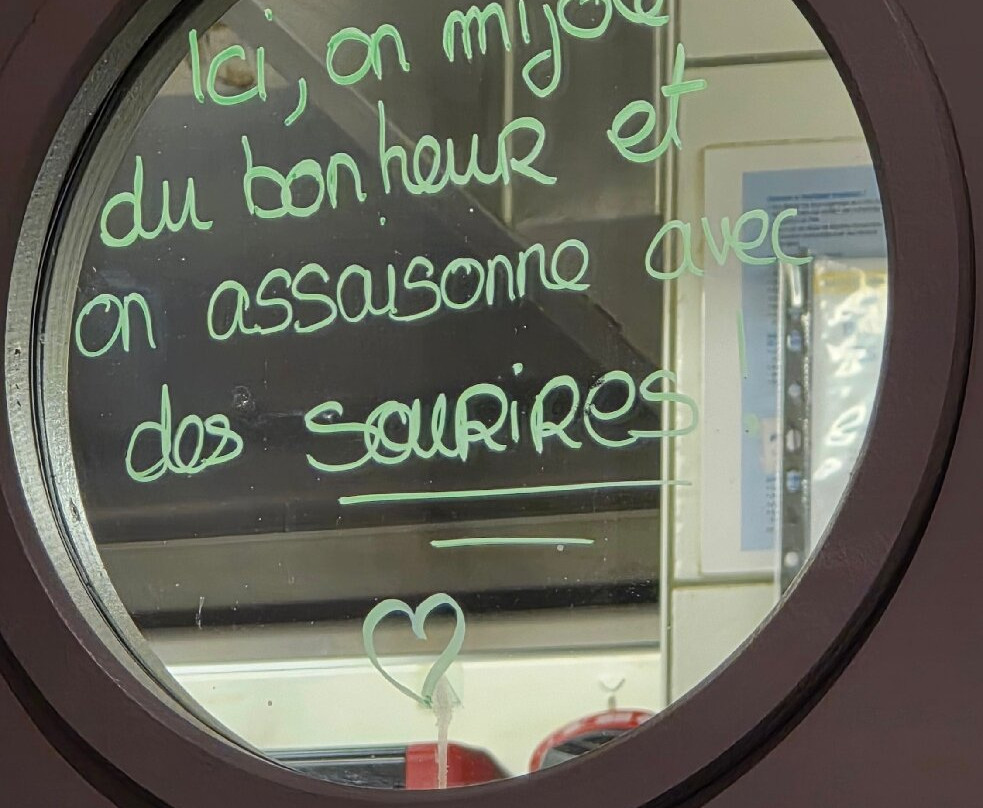 Ici, on mijote
du bonheur et
on assaisonne avec
des souRiRes !